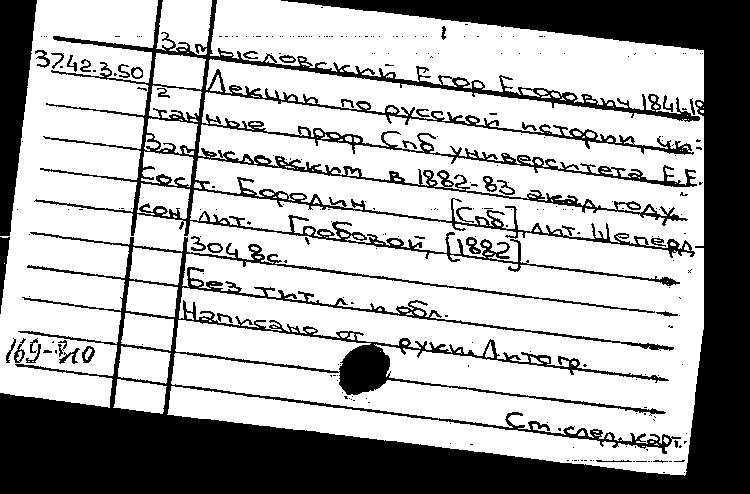 1
Замысловский, Егор Егорович, 1841-18
37.42.3.50
2
Лекции по русской истории, чи-
танные проф. Спб университета Е.Е.
Замысловским в 1882-83 акад. году.
Сост. Бородин [Спб], лит. Шеперд-
сон, лит. Гробовой, [1882].
304, 8с.
Без тит. л. и обл.
Написано от руки. Литогр.
169-
См. след. карт.